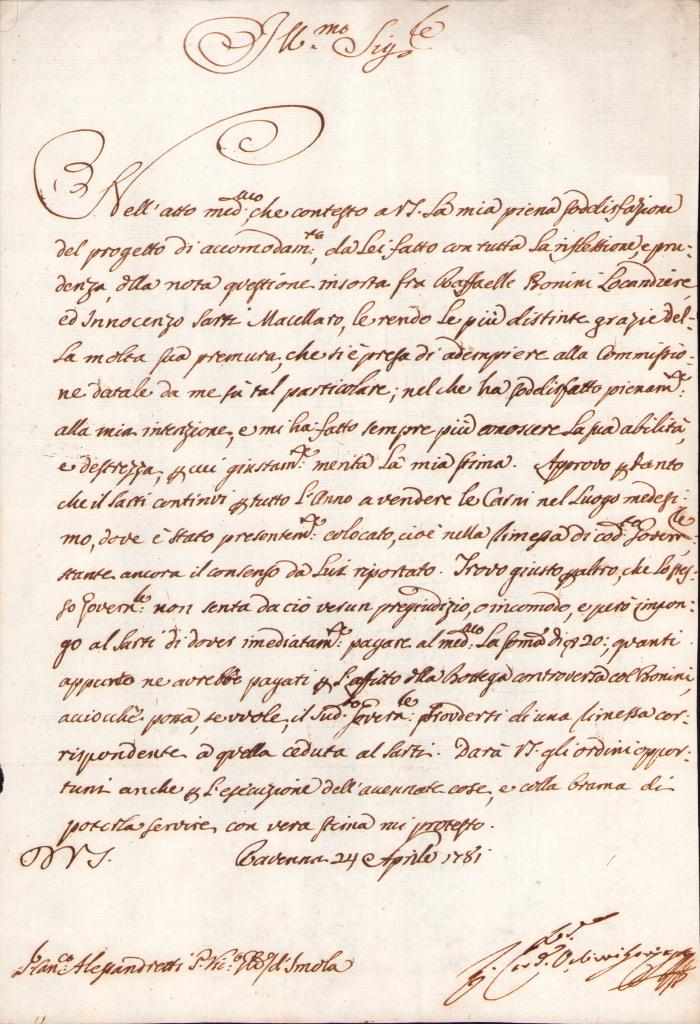 Ill.mo Sig.re
Nell' atto med.mo che contesto a VS. la mia piena soddisfazione
del progetto di accomodam.to, da Lei fatto con tutta la riflessione, e pru-
denza, dlla nota questione insorta fra Raffaelle Bonini Locandiere,
ed Innocenzo Sarti Macellaro, le rendo le più distinte grazie del-
la molta sua premura, che si è presa di adempiere alla Commissio-
ne datale da me sù tal particolare; nel che ha soddisfatto pienam.te
alla mia intenzione, e mi ha fatto sempre più conoscere la sua abilità,
e destrezza, p cui giustam.te merita la mia stima. Approvo p tanto
che il Sarti continvi p tutto l'Anno a vendere le Carni nel Luogo medesi-
mo, dove è stato presentem.te colocato, cioè nella rimessa di cod.to Govern.re
stante ancora il consenso da Lui riportato. Trovo giusto p altro, che lo stes-
so Govern.re non senta da ciò verun pregiudizio, o incomodo, e però impon-
go al Sarti di dover imediatam.te pagare al med.mo la soma di 20:, quanti
appunto ne avrebbe pagati p l'affitto dlla Bottega controversa col Bonini,
acciocchè possa, se vuole, il sud.to Govern.re provederti di una rimessa cor-
rispondente a quella ceduta al Sarti. Darà VS. gli ordini oppor-
tuni anche p l'esecuzione dell' avennate cose, e colla brama di
poterla servire con vera stima mi protesto.
D VS. Ravenna 24 Aprile 1781
Fran.co Alessandretti P. Vic.o d'Imola